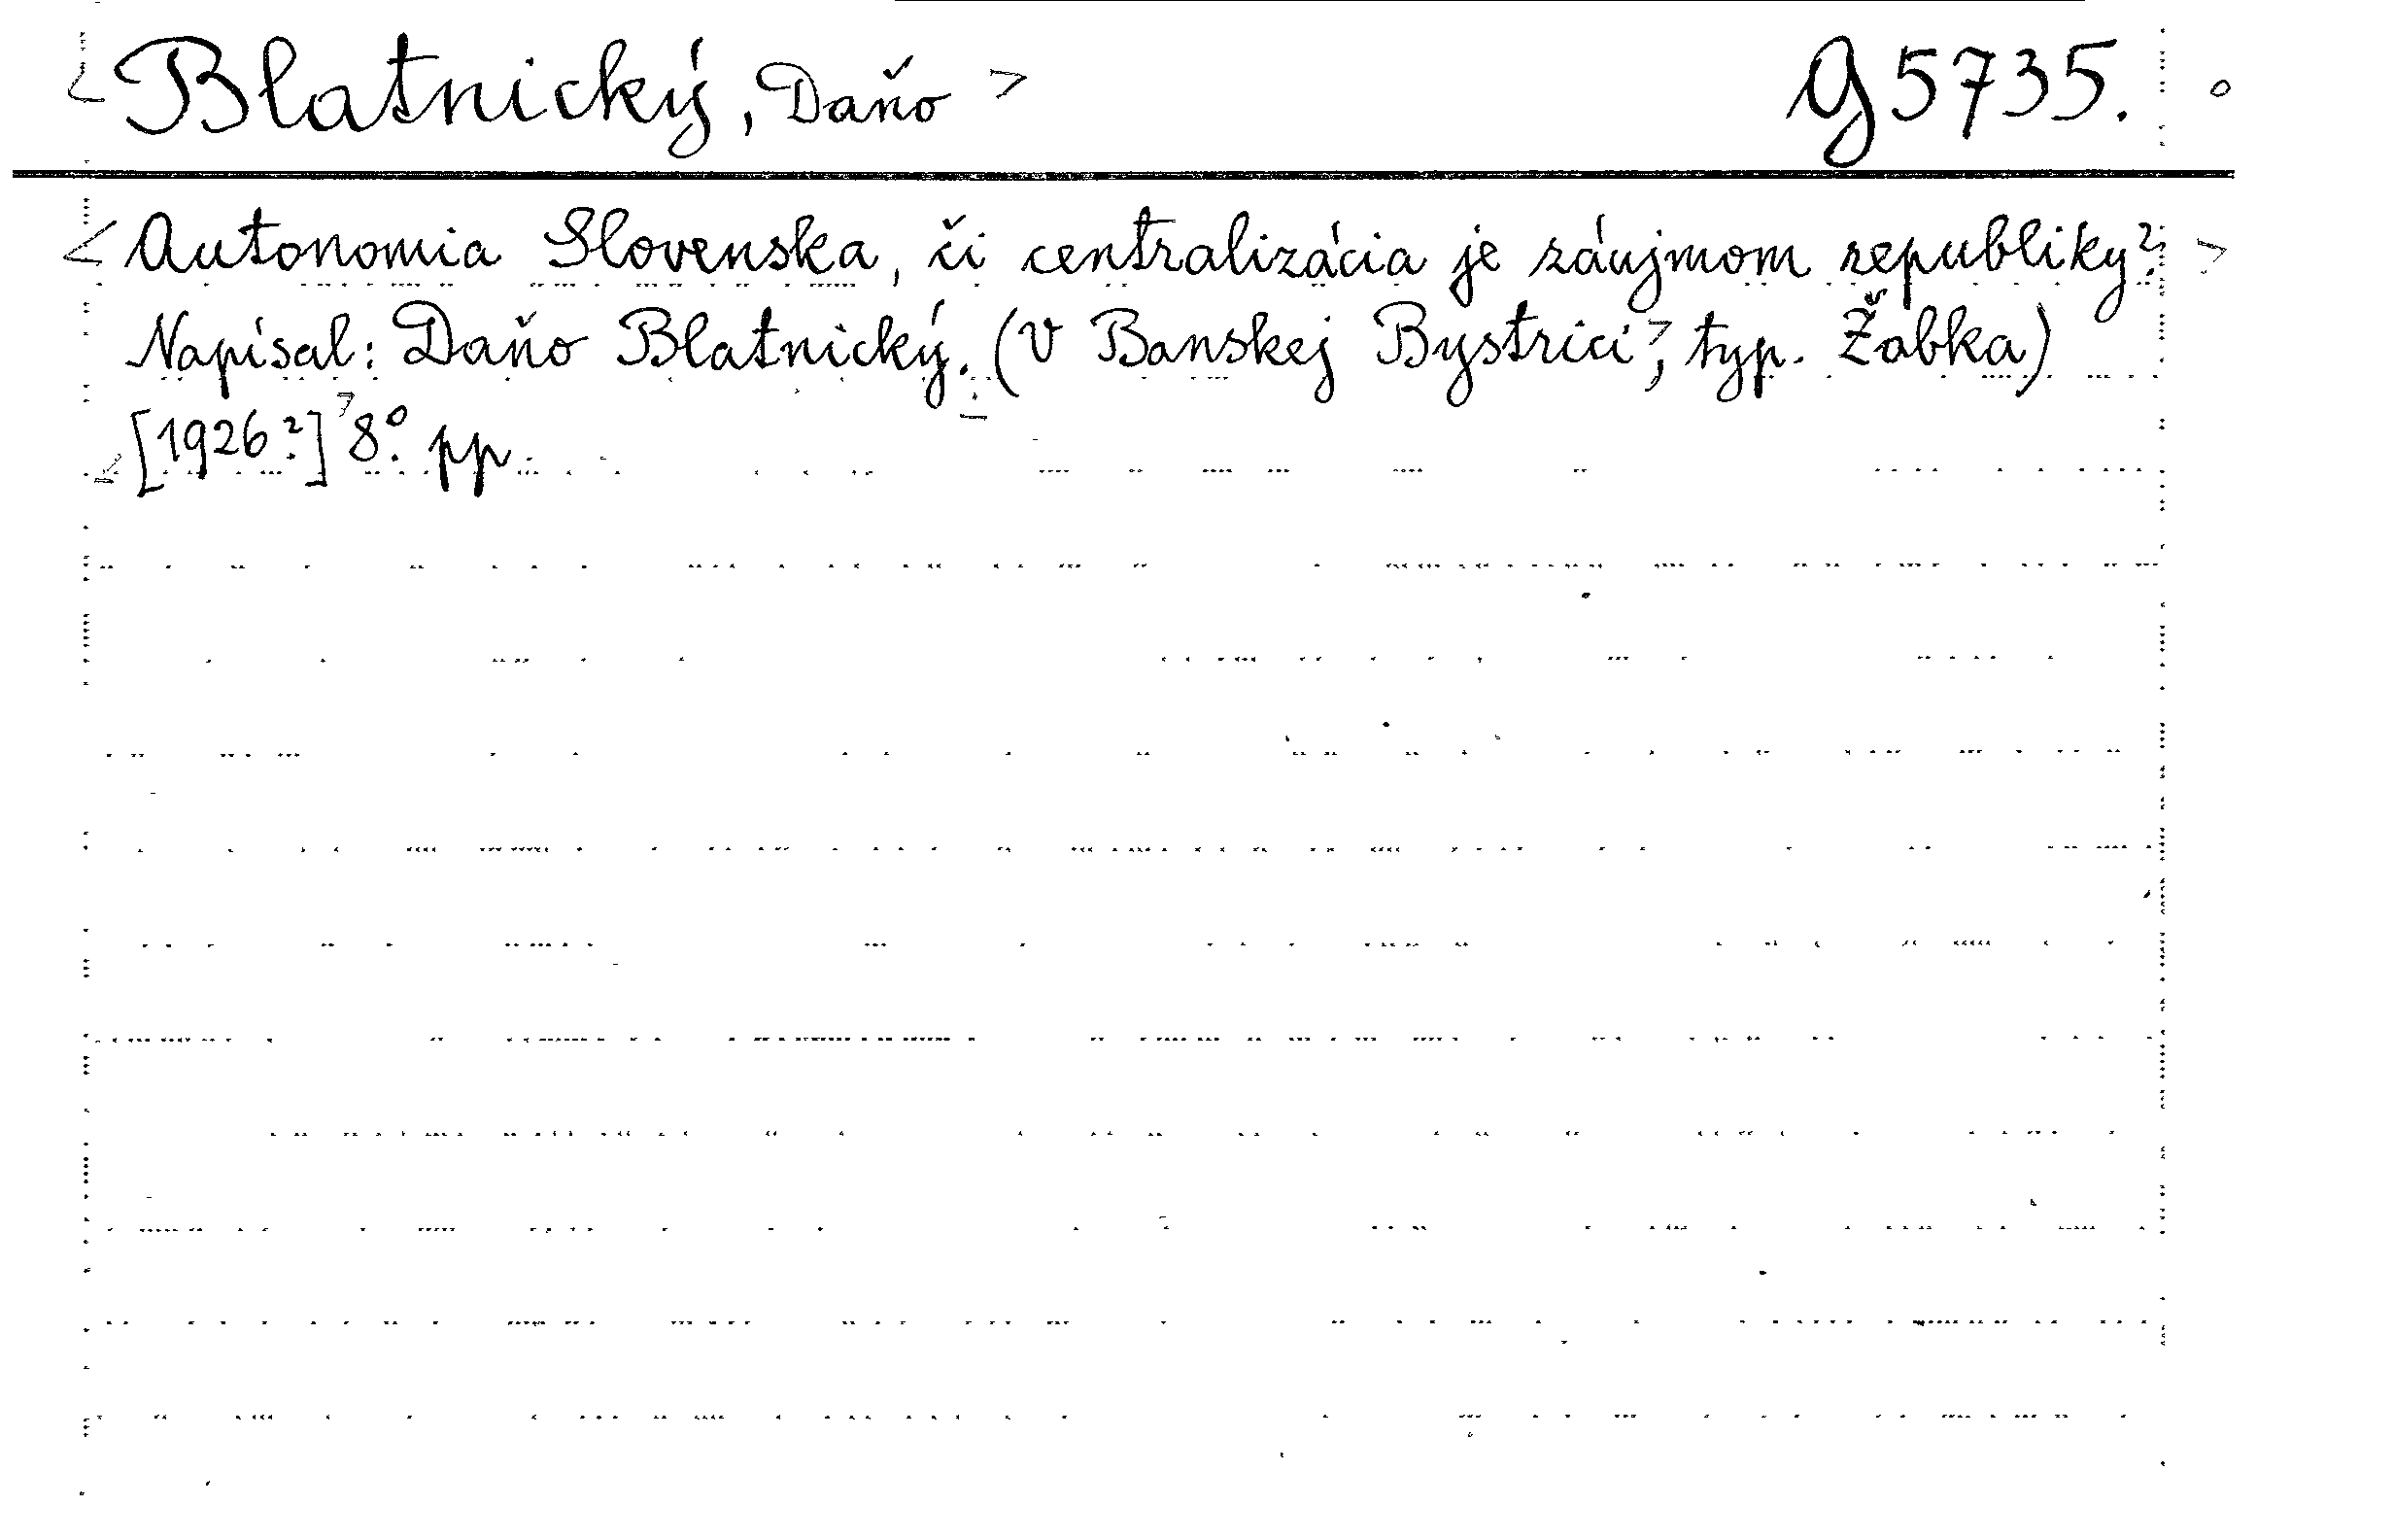 <Blatnický, Daňo> G 5735.
<Autonomia Slovenska, či centralizácia je záujmom republiky?>
Napísal: Daňo Blatnický. (V Banskej Bystrici, typ. Žabka)
[1926?] 8°. pp.